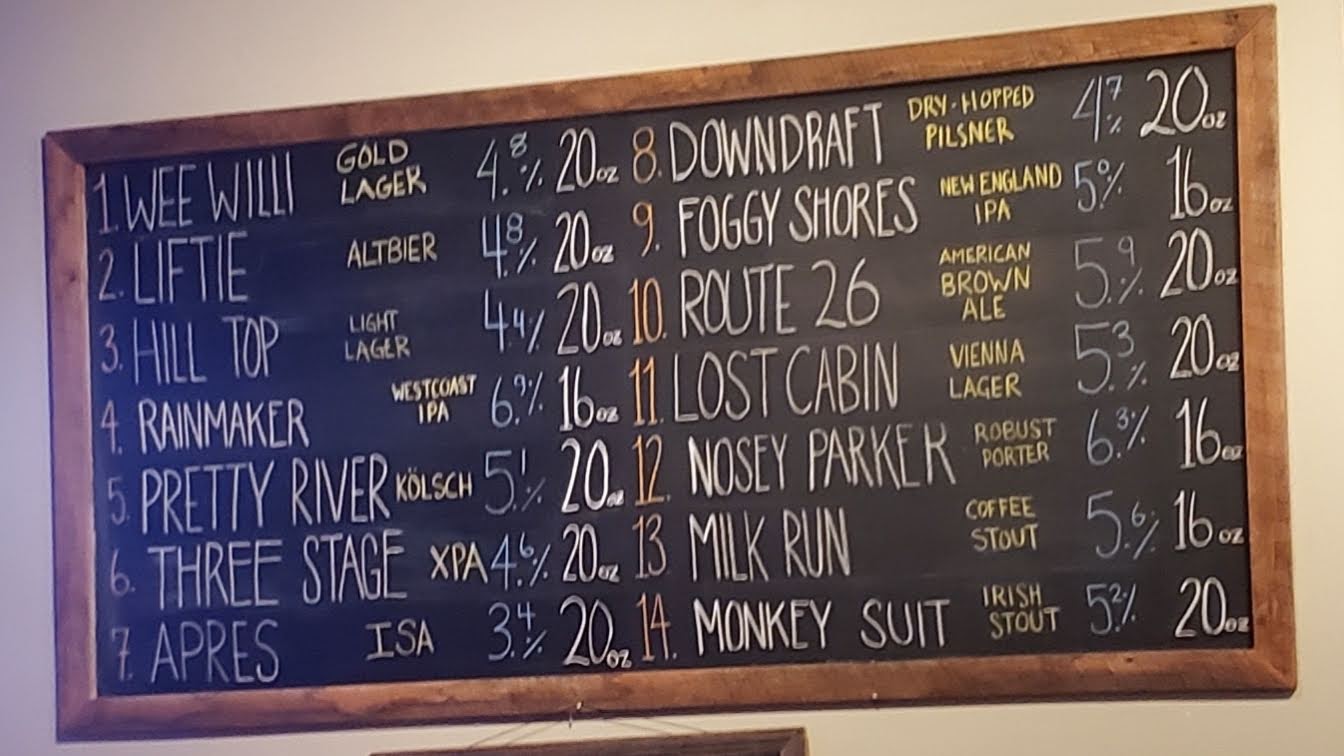 1. WEE WILLI GOLD LAGER 4.8% 20oz
2. LIFTIE ALTBIER 4.8% 20oz
3. HILL TOP LIGHT LAGER 4.4% 20oz
4. RAINMAKER WESTCOAST IPA 6.9% 16oz
5. PRETTY RIVER KÖLSCH 5.1% 20oz
6. THREE STAGE XPA 4.6% 20oz
7. APRES ISA 3.4% 20oz
8. DOWNDRAFT DRY-HOPPED PILSNER 4.7% 20oz
9. FOGGY SHORES NEW ENGLAND IPA 5.0% 16oz
10. ROUTE 26 AMERICAN BROWN ALE 5.9% 20oz
11. LOST CABIN VIENNA LAGER 5.3% 20oz
12. NOSEY PARKER ROBUST PORTER 6.3% 16oz
13 MILK RUN COFFEE STOUT 5.6% 16oz
14. MONKEY SUIT IRISH STOUT 5.2% 20oz